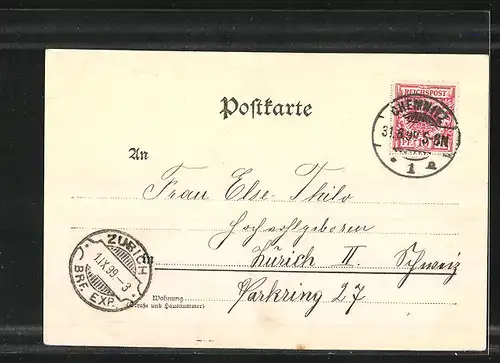 REICHSPOST
CHEMNITZ
31.8.99.5-6N
* 1 e
Postkarte
An
Frau Else Thilo
Hochwohlgeboren
Zürich II. Schweiz
in
Parkring 27
Wohnung
(Straße und Hausnummer)
ZÜRICH
1.IX.99.–3
BRF. EXP.